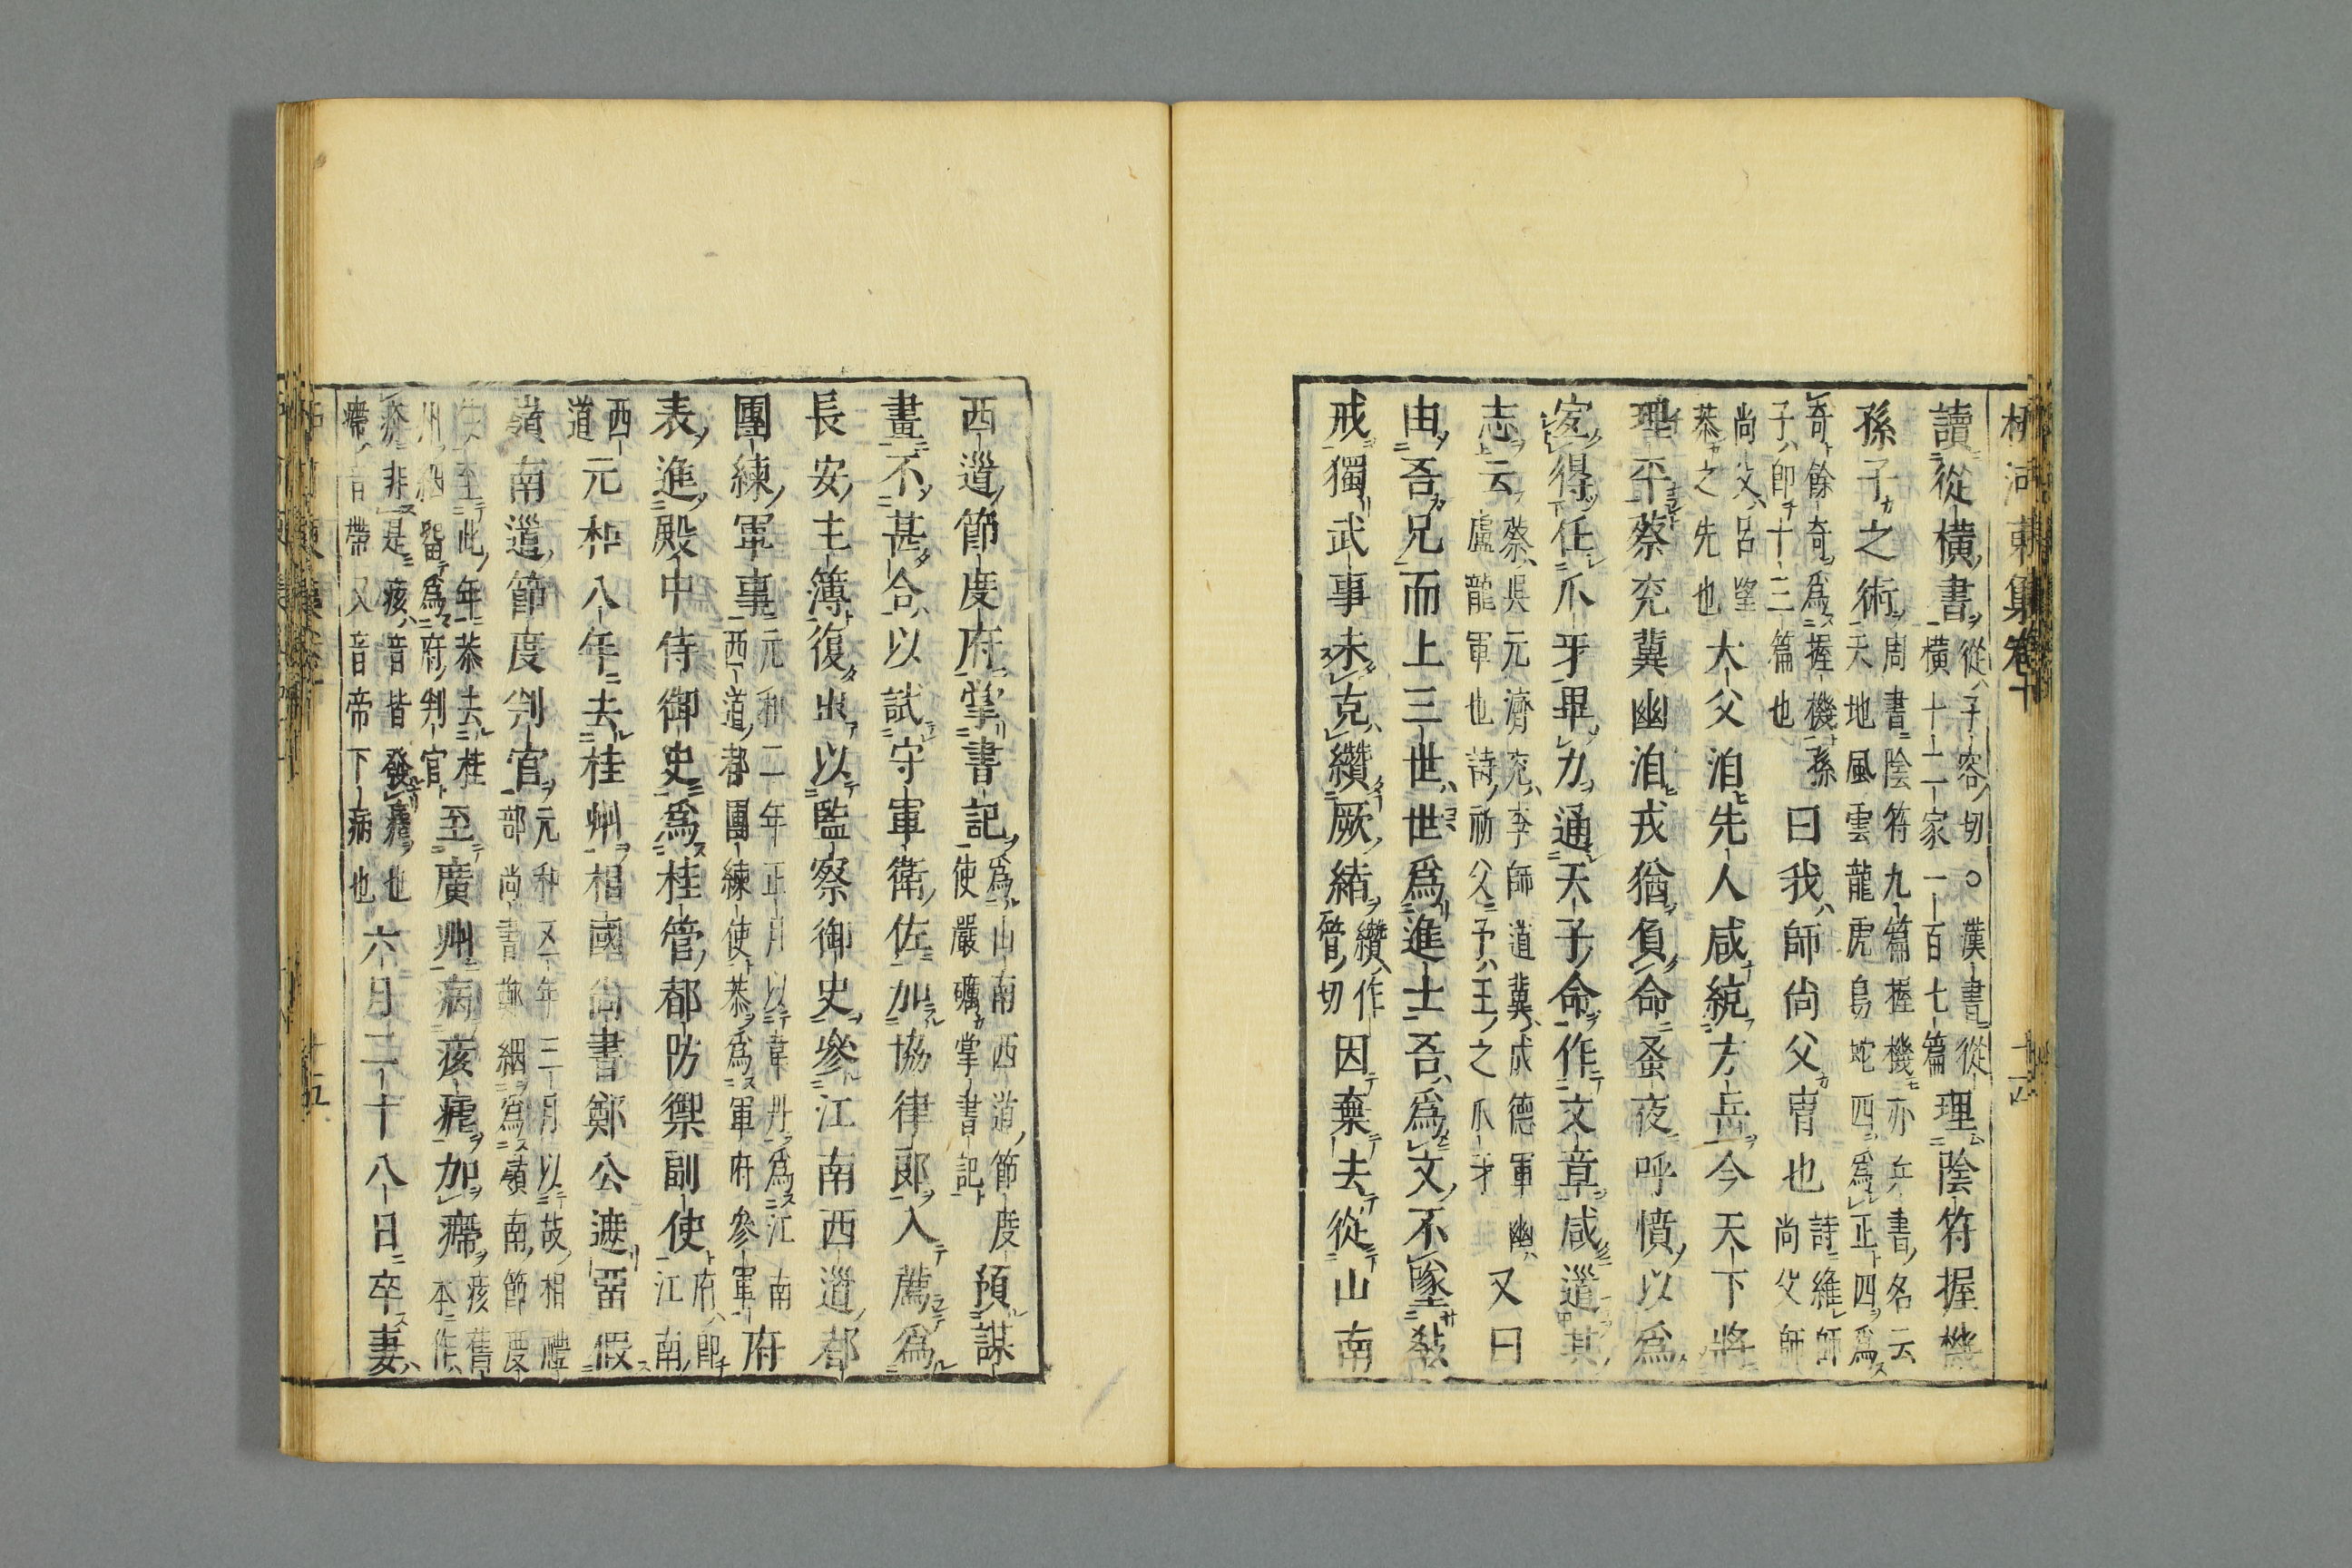 柳河東集卷十
讀從橫書從子容切○漢書從橫十二家一百七篇理陰符握機
孫子之術周書陰符九篇握機亦兵書名云天地風雲龍虎鳥蛇四為正四為
奇餘奇為握機孫子即十三篇也曰我師尚父冑也詩維師尚父師
尚父呂望恭之先也大父洎先人咸統方岳今天下將
理平蔡兖冀幽洎戎猶負命蚤夜呼憤以為
宜得任爪牙畢力通天子命作文章咸道其
志云蔡吳元濟兖李師道冀成德軍幽盧龍軍也詩祈父予王之爪牙又曰
由吾兄而上三世世為進士吾為文不墜教
戒獨武事未克纘厥緒纘作管切因棄去從山南
西道節度府掌書記為山南西道節度使嚴礪掌書記預謀
畫不甚合以試守軍衛佐加協律郎入薦為
長安主簿復出以監察御史參江南西道都
團練軍事元和二年正月以韋丹為江南西道都團練使恭為軍府參軍府
表進殿中侍御史為桂管都防禦副使府即江南
西道元和八年去桂州相國尚書鄭公遮留假
嶺南道節度判官元和五年三月以故相禮部尚書鄭絪為嶺南節度
使至此年恭去桂州絪留為府判官至廣州病痎瘧加癤痎舊本作
疹非是痎音皆發瘧也癤音帶又音帝下病也六月二十八日卒妻